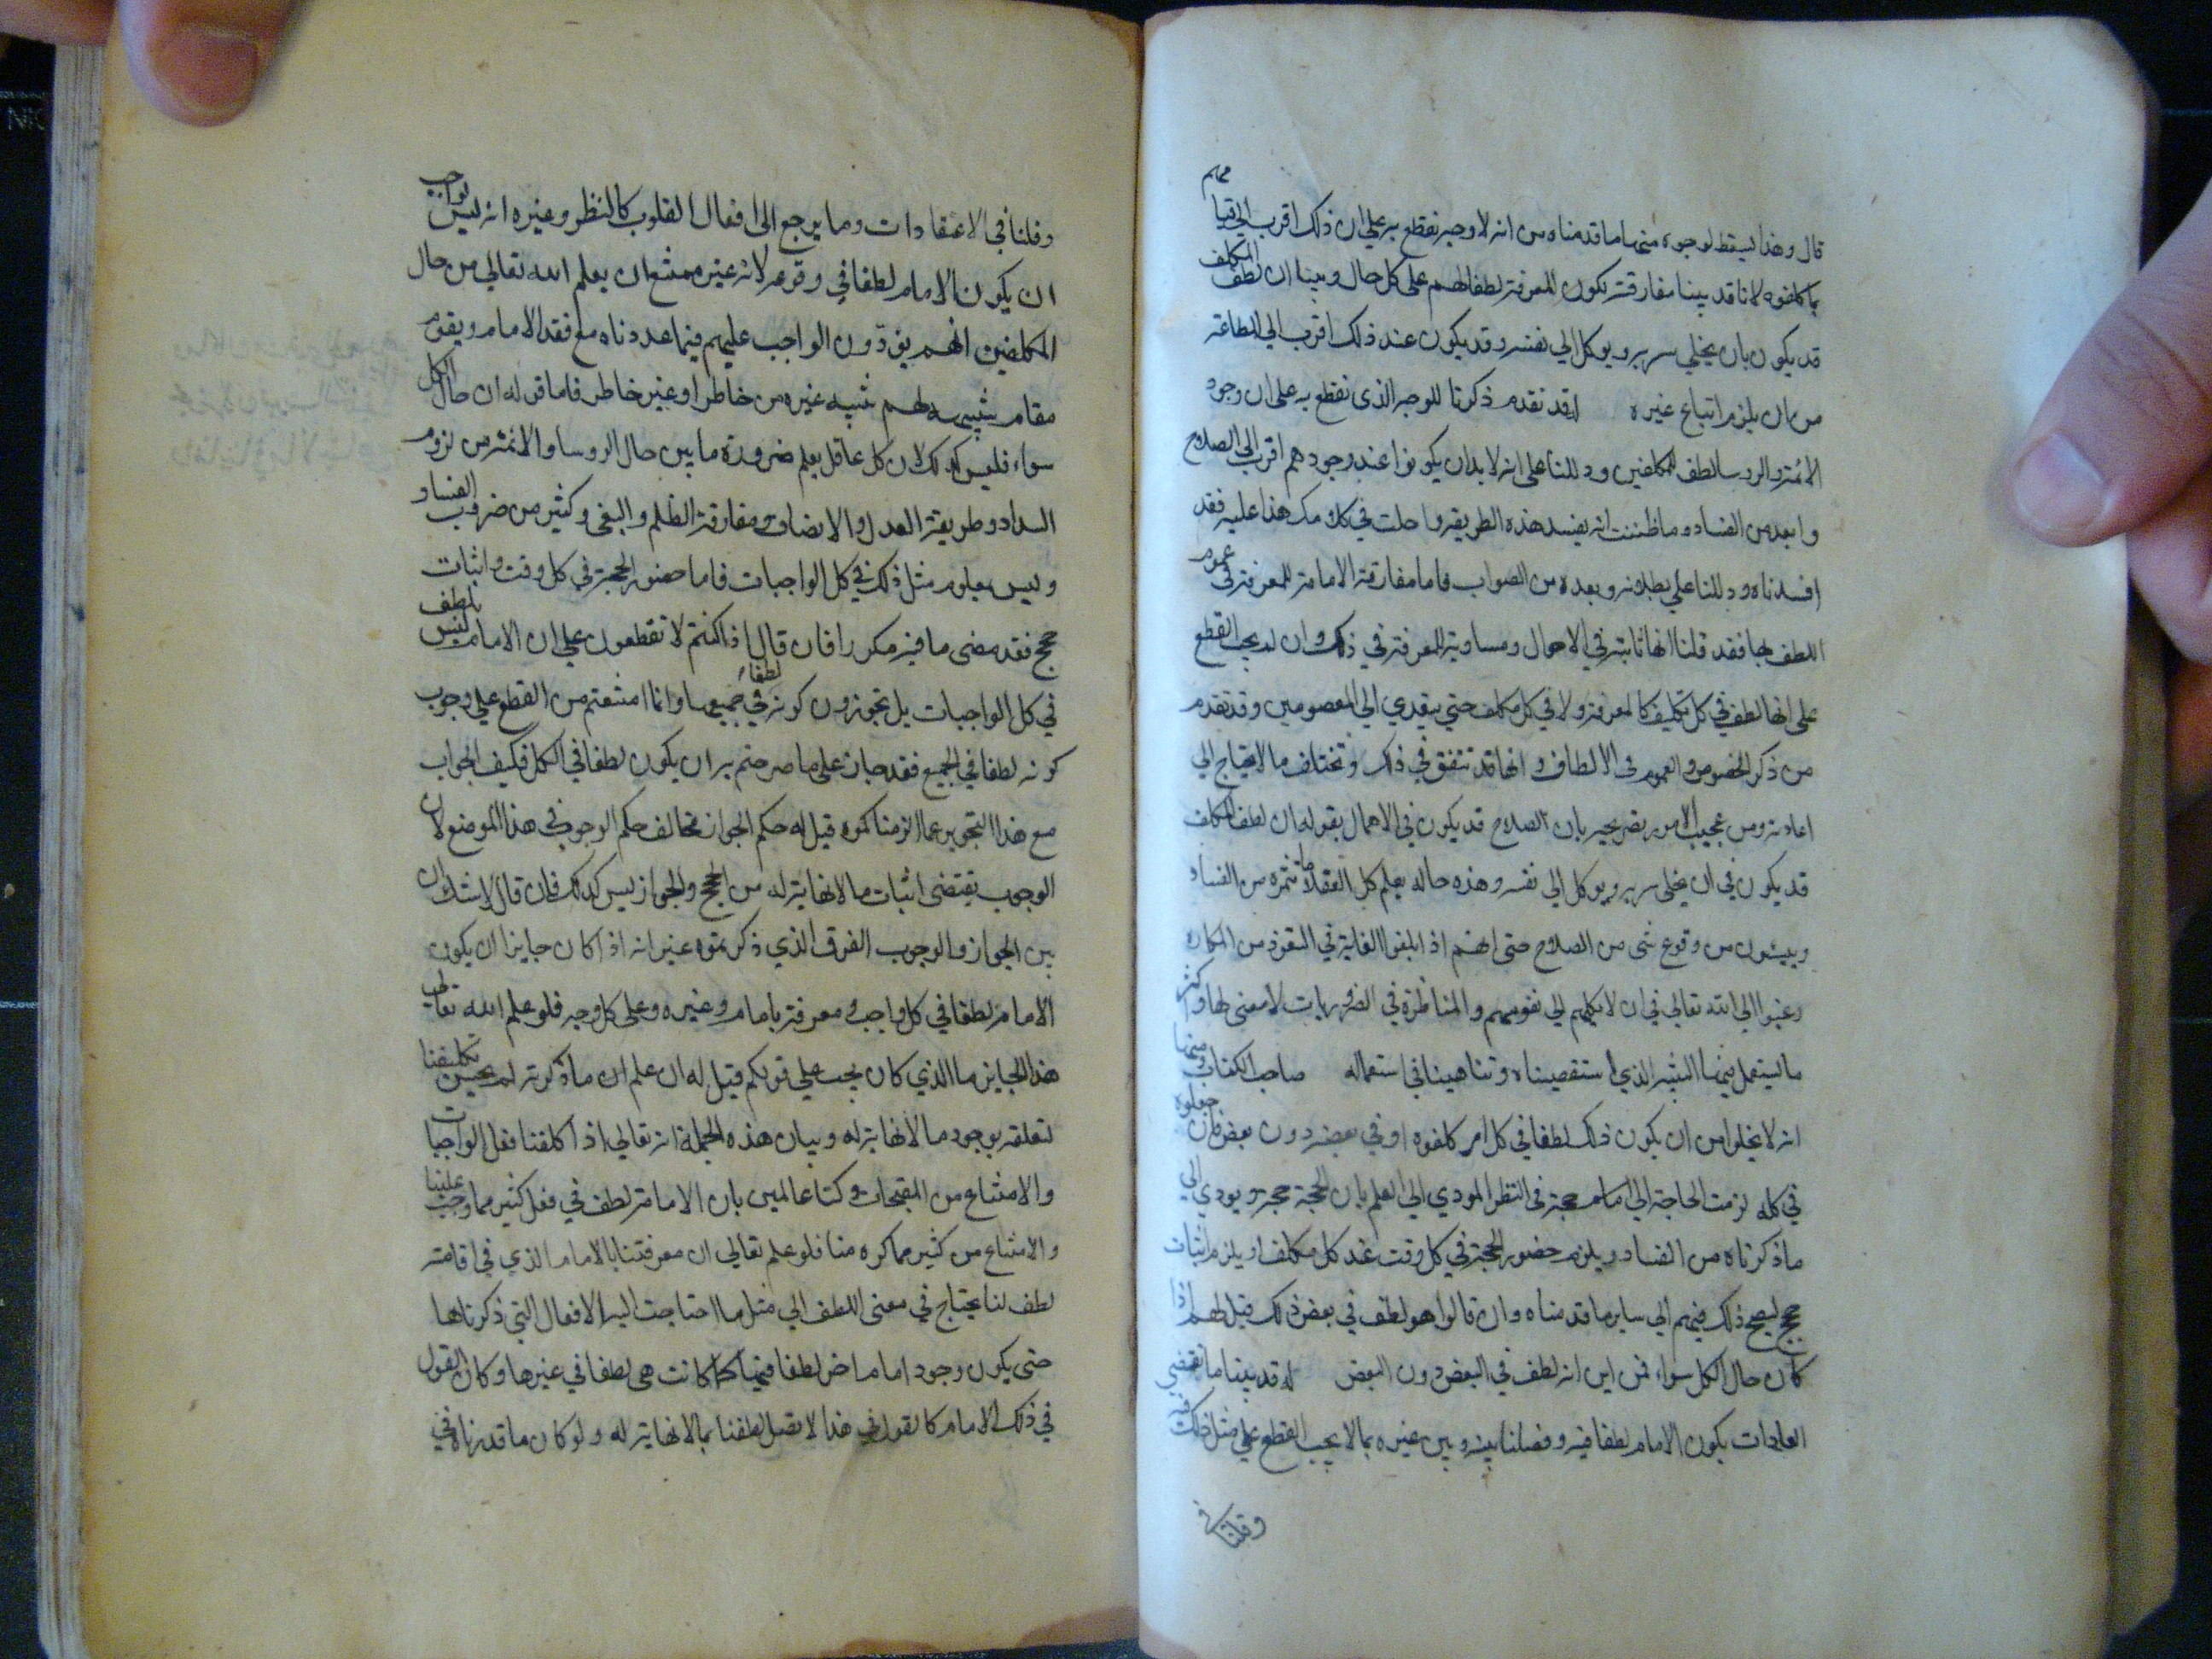 قال وهذا يسقط لوجوه منها ما قدمناه من انه لا وجه نقطع به علي ان ذلك اقرب الي قيامهم
بما كلفوه لانا قد بينا مفارقته لكون المعرفة لطفا لهم على كل حال وبينا ان لطف المكلف
قد يكون بان يخلي سربه ويوكل الي نفسه وقد يكون عند ذلك اقرب الي الطاعة
من ان يلزم اتباع غيره له قد تقدم ذكرنا للوجه الذي نقطع به على ان وجود
الائمة والروسا لطف للمكلفين ودللنا على انه لا بد ان يكونوا عند وجودهم اقرب الي الصلاح
وابعد من الفساد وما ظننت انه يفسد هذه الطريقة واحلت في كلامك هذا عليه فقد
افسدناه ودللنا علي بطلانه وبعده من الصواب فاما مفارقة الامامة للمعرفة في عموم
اللطف بها فقد قلنا انها ثابتة في الاحوال ومساوية للمعرفة في ذلك وان لم يجب القطع
على انها لطف في كل تكليف كالمعرفة ولا في كل مكلف حتي يتعدي الي المعصومين وقد تقدم
من ذكر الخصوص والعموم في الالطاف وانها قد تتفق في ذلك وتختلف ما لا يحتاج الي
اعادته ومن عجيب الامور تصريحه بان الصلاح قد يكون في الاهمال بقوله ان لطف المكلف
قد يكون في ان يخلي سربه ويوكل الي نفسه وهذه حاله يعلم كل العقلا ما تثمره من الفساد
وييسون من وقوع شي من الصلاح حتى انهم اذا بلغوا الغاية في التعوذ من المكاره
رغبوا الي الله تعالي في ان لا يكلهم الي نفوسهم والمناظرة في الضروريات لا معنى لها واكثر
ما يستعمل فيها التنبيه الذي استقصيناه وتناهينا في استعماله صاحب الكتاب ومنها
انه لا يخلوا من ان يكون ذلك لطفا في كل امر كلفوه او في بعضه دون بعض فان جعلوه
في كله لزمت الحاجة الي امام وحجة في النظر المودي الي العلم بان الحجة حجة ويودي الي
ما ذكرناه من الفساد ويلزم حضور الحجة في كل وقت عند كل مكلف او يلزم اثبات
حجج ليصح ذلك فيهم الي ساير ما قدمناه وان قالوا هو لطف في بعض ذلك قيل لهم اذا
كان حال الكل سواء فمن اين انه لطف في البعض دون البعض له قد بينا ما تقتضي
العادات بكون الامام لطفا فيه وفصلنا بينه وبين غيره بما لا يجب القطع علي مثل ذلك فيه
وقلنا في
وقلنا في الاعتقادات وما يرجع الى افعال القلوب كالنظر وغيره انه ليس بواجب
ان يكون الامام لطفا في وقوعه لانه غير ممتنع ان يعلم الله تعالي من حال
المكلفين انهم يودون الواجب عليهم فيما عددناه مع فقد الامام ويقوم
مقام تنبيهه لهم تنبيه غيره من خاطر او غير خاطر فاما قوله ان حال الكل
سواء فليس كذلك لان كل عاقل يعلم ضرورة ما بين حال الروسا والائمة من لزوم
السداد وطريقة العدل والانصاف ومفارقة الظلم والبغي وكثير من ضروب الفساد
وليس معلوم مثل ذلك في كل الواجبات فاما حضور الحجة في كل وقت واثبات
حجج فقد مضى ما فيه مكررا فان قال اذا كنتم لا تقطعون علي ان الامام ليس بلطف
في كل الواجبات بل تجوزون كونه لطفا في جميعها وانما امتنعتم من القطع علي وجوب
كونه لطفا في الجميع فقد جاز على ما صرحتم به ان يكون لطفا في الكل فكيف الجواب
مع هذا التجويز عما الزمناكموه قيل له حكم الجواز مخالف حكم الوجوب في هذا الموضع لان
الوجوب يقتضي اثبات ما لا نهاية له من الحجج والجواز ليس كذلك فان قال لا شك ان
بين الجواز والوجوب الفرق الذي ذكرتموه غير انه اذا كان جايزا ان يكون
الامام لطفا في كل واجب ومعرفة بامام وغيره وعلى كل وجه فلو علم الله تعالى
هذا الجايز ما الذي كان يجب علي قولكم قيل له ان علم ان ما ذكرته لم يحسن تكليفنا
لتعلقه بوجود ما لا نهاية له وبيان هذه الجملة انه تعالي اذا كلفنا فعل الواجبات
والامتناع من المقبحات وكنا عالمين بان الامامة لطف في فعل كثير مما وجب علينا
والامتناع من كثير مما كره منا فلو علم تعالي ان معرفتنا بالامام الذي في اقامته
لطف لنا يحتاج في معنى اللطف الي مثل ما احتاجت اليه الافعال التي ذكرناها
حتى يكون وجود امام اخر لطفا فيها كما كانت هي لطفا في غيرها وكان القول
في ذلك الامام كالقول في هذا لاتصل لطفنا بما لا نهاية له ولو كان ما قدرناه في